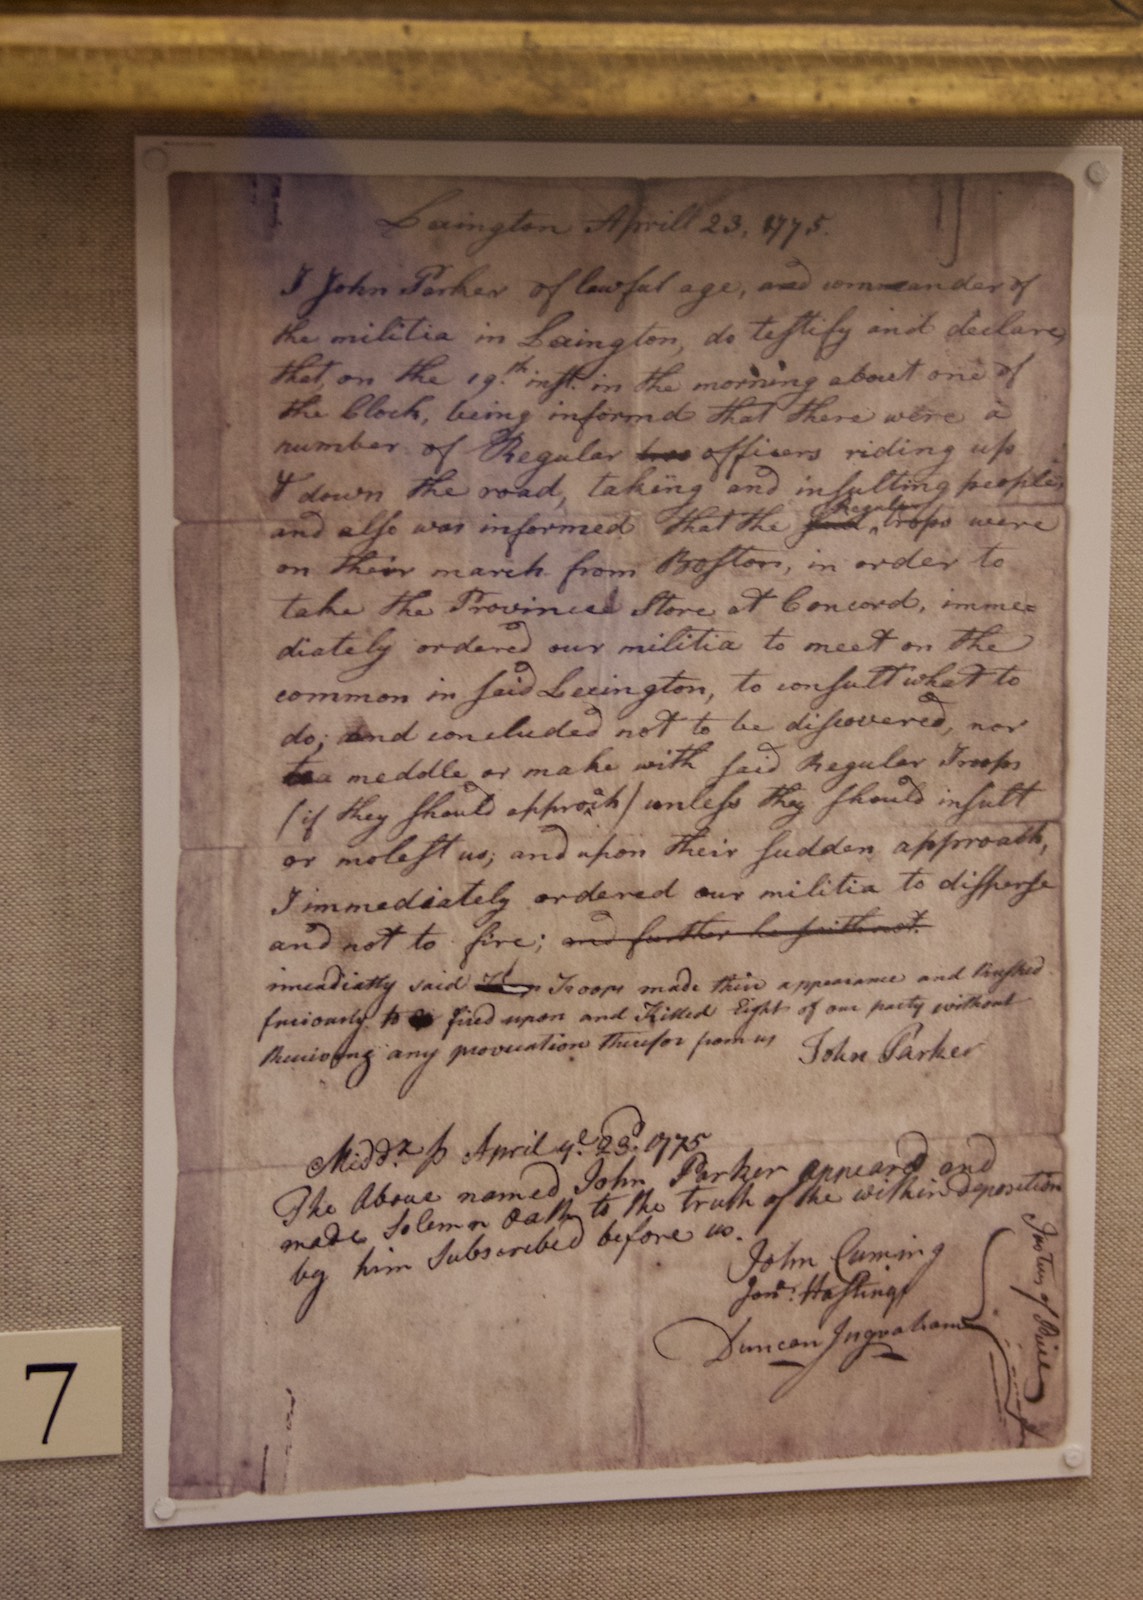 Lexington Aprill 23, 1775.
I John Parker of lawful age, and commander of
the militia in Lexington, do testify and declare,
that, on the 19.th inst. in the morning about one of
the Clock, being informd that there were a
number of Regular officers riding up
& down the road, taking and insulting people;
and also was informed that the Regular trops were
on their march from Boston, in order to
take the Province Store at Concord, imme=
diately ordered our militia to meet on the
common in said Lexington, to consult what to
do; and concluded not to be discovered, nor
meddle or make with said Regular Troops
(if they should approach) unless they should insult
or molest us; and upon their sudden approach,
I immediately ordered our militia to disperse
and not to fire; and further he saith not.
immediatly said Troops made their appearance and Rushed
furiously to fired upon and Killed Eight of our party without
Receiving any provocation therefor from us John Parker
Midd.x ss April ye. 23d. 1775
The Above named John Parker appeard and
made Solemn Oath to the truth of the within Deposition
by him Subscribed before us.
John Cuming
Jon.a Hastings
Duncan Ingraham
Justices of
7